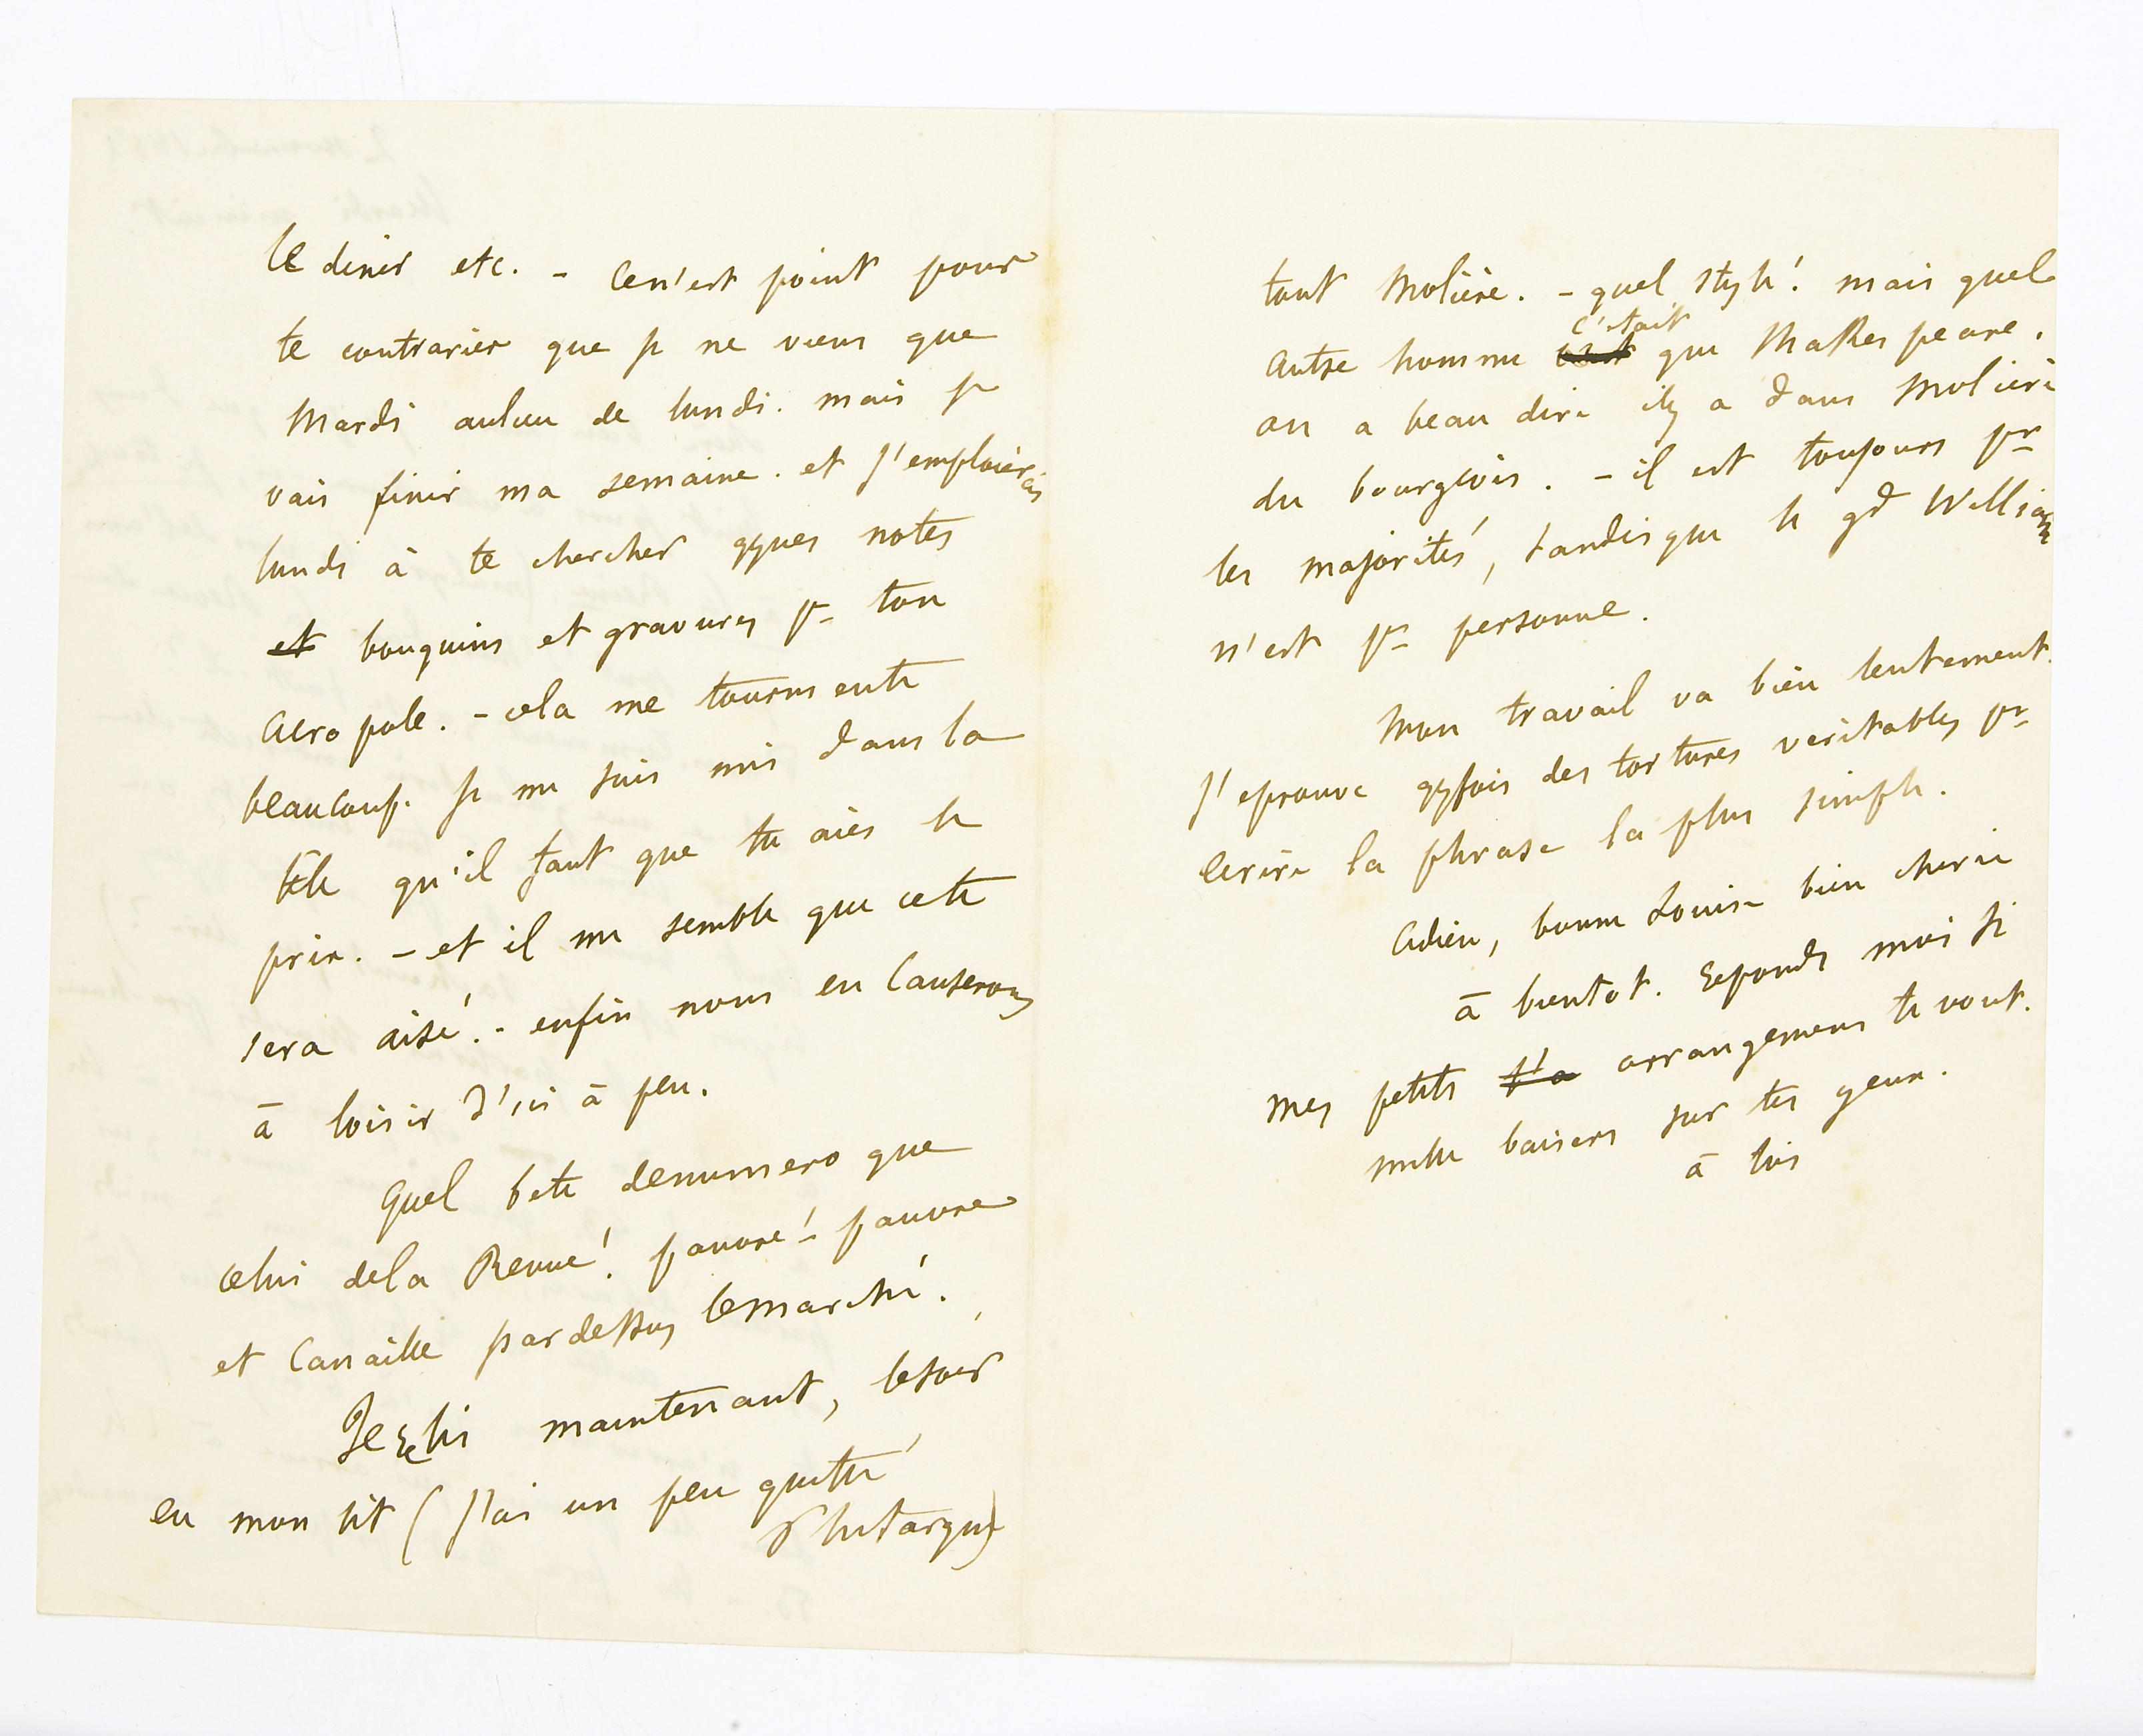 le diner etc. - Ce n'est point pour
te contrarier que je ne viens que
Mardi aulieu de lundi. mais je
vais finir ma semaine. et j'emploierais
lundi à te chercher qques notes
et bouquins et gravures pr ton
acropole. - cela me tourmente
beaucoup. je me suis mis dans la
tête qu'il faut que tu aies le
prix. - et il me semble que cette
sera aisé. - enfin nous en causerons
à loisir d'ici à peu.
Quel bete denumero que
celui dela Revue! pauvre! - pauvre
et Canaille pardessus lemarché.
Je relis maintenant, lesoir
en mon lit (j'ai un peu quitté
Plutarque)
tout Molière. - quel style! mais quel
autre homme c'etait que Shakespeare.
on a beau dire il y a dans Molière
du bourgeois. - il est toujours pr
les majorités, tandisque le gd William
n'est pr personne.
Mon travail va bien lentement.
j'eprouve qqfois des tortures veritables pr
écrire la phrase la plus simple.
Adieu, bonne Louise bien cherie
à bientot. Reponds moi si
mes petits arrangemens te vont.
mille baisers sur tes yeux.
à toi